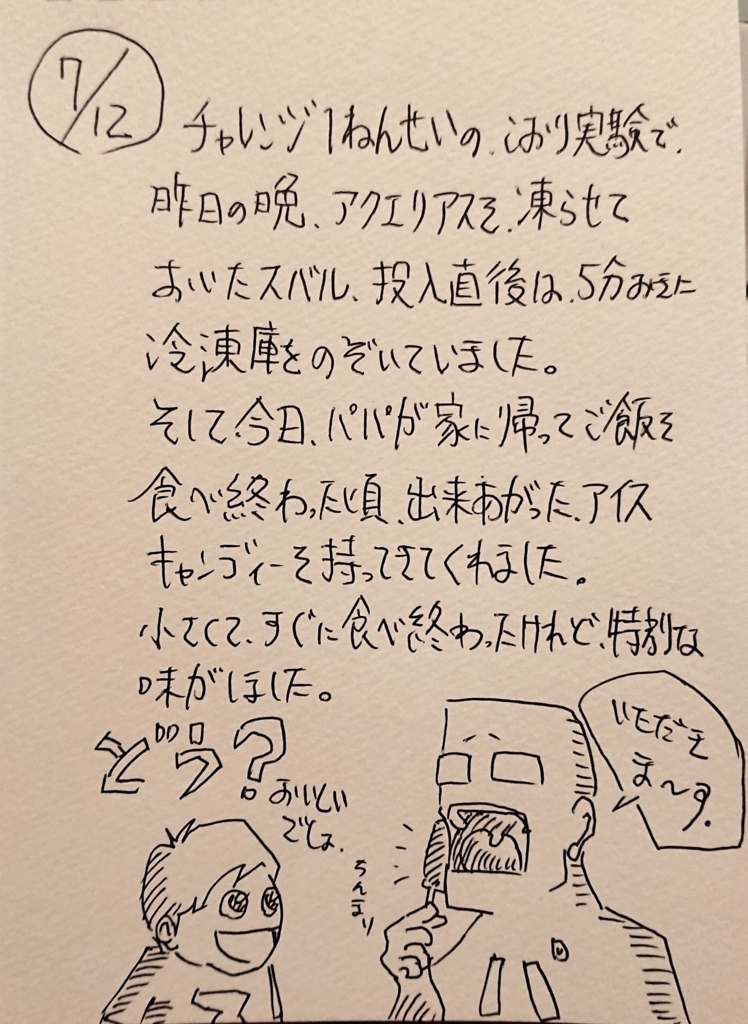 7/12
チャレンジ1ねんせいの、こおり実験で、
昨日の晩、アクエリアスを、凍らせて
おいたスバル、投入直後は、5分おきに
冷凍庫をのぞいていました。
そして、今日、パパが家に帰ってご飯を
食べ終わった頃、出来あがった、アイス
キャンディーを持ってきてくれました。
小さくて、すぐに食べ終わったけれど、特別な
味がしました。
どう?
おいしい
でしょ。
ちんまり
いただき
ま〜す。